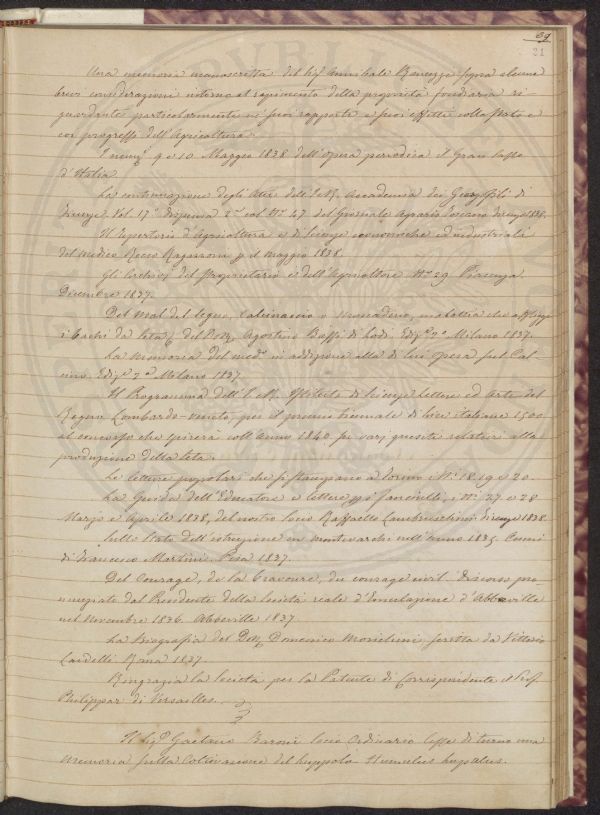 69
21
Una memoria manoscritta del Sig.r Annibale Ranuzzi sopra alcune
brevi considerazioni intorno al reparimento della proprietà fondiaria ri-
guardante particolarmente ne' suoi rapporti e suoi effetti collo Stato e
coi progressi dell'Agricoltura.
I numi 9 e 10. Maggio 1838 dell'opera periodica il Gran Sasso
d'Italia.
La continuazione degli Atti dell'I. e R. Accademia dei Georgofili di
Firenze. Vol. 17.° Dispensa 2.a col N.° 47 del Giornale Agrario Toscano Firenze 1838.
Il Repertorio d'Agricoltura e di Scienze economiche ed industriali
del Medico Rocco Ragazzoni p. il maggio 1838.
Gli Archivi del Proprietario e dell'Agricoltore N.° 29 Piacenza
Decembre 1837.
Del mal del segno, Calcinaccio o Moscardino, malattia che affligge
i bachi da seta del Dott. Agostino Bassi di Lodi. Ediz.e 2.a Milano 1837.
La Memoria del med.o in addizione alla di lui opera sul Cal-
cino. Ediz.e 2.a Milano 1837.
Il Programma dell'I. R. Istituto di Scienze lettere ed arti del
Regno Lombardo-Veneto, per il premio biennale di lire italiane 1500
al concorso che spirerà coll'Anno 1840. su varj quesiti relativi alla
produzione della Seta.
Le letture popolari che si stampano a Torino i N.i 18. 19 e 20.
La Guida dell'Educatore e letture p. i fanciulli, i N.i 27 e 28
Marzo e Aprile 1838, del nostro Socio Raffaello Lambruschini. Firenze 1838.
Sullo Stato dell'istruzione in Montevarchi nell'anno 1835. Cenni
di Francesco Martini. Pisa 1837.
Del Courage, de la bravoure, du courage civil. Discorso pro-
nunziato dal Presidente della Società reale d'Emulazione d'Abbeville
nel Novembre 1836. Abbeville 1837.
La Biografia del Dott. Domenico Morichini scritta da Vittorio
Lardelli Roma 1837.
Ringrazia la Società per la Patente di Corrispondente il Sig.
Philippar di Versailles.
Il Sig.r Gaetano Baroni Socio Ordinario lesse di turno una
Memoria sulla Coltivazione del luppolo - Humulus lupulus.